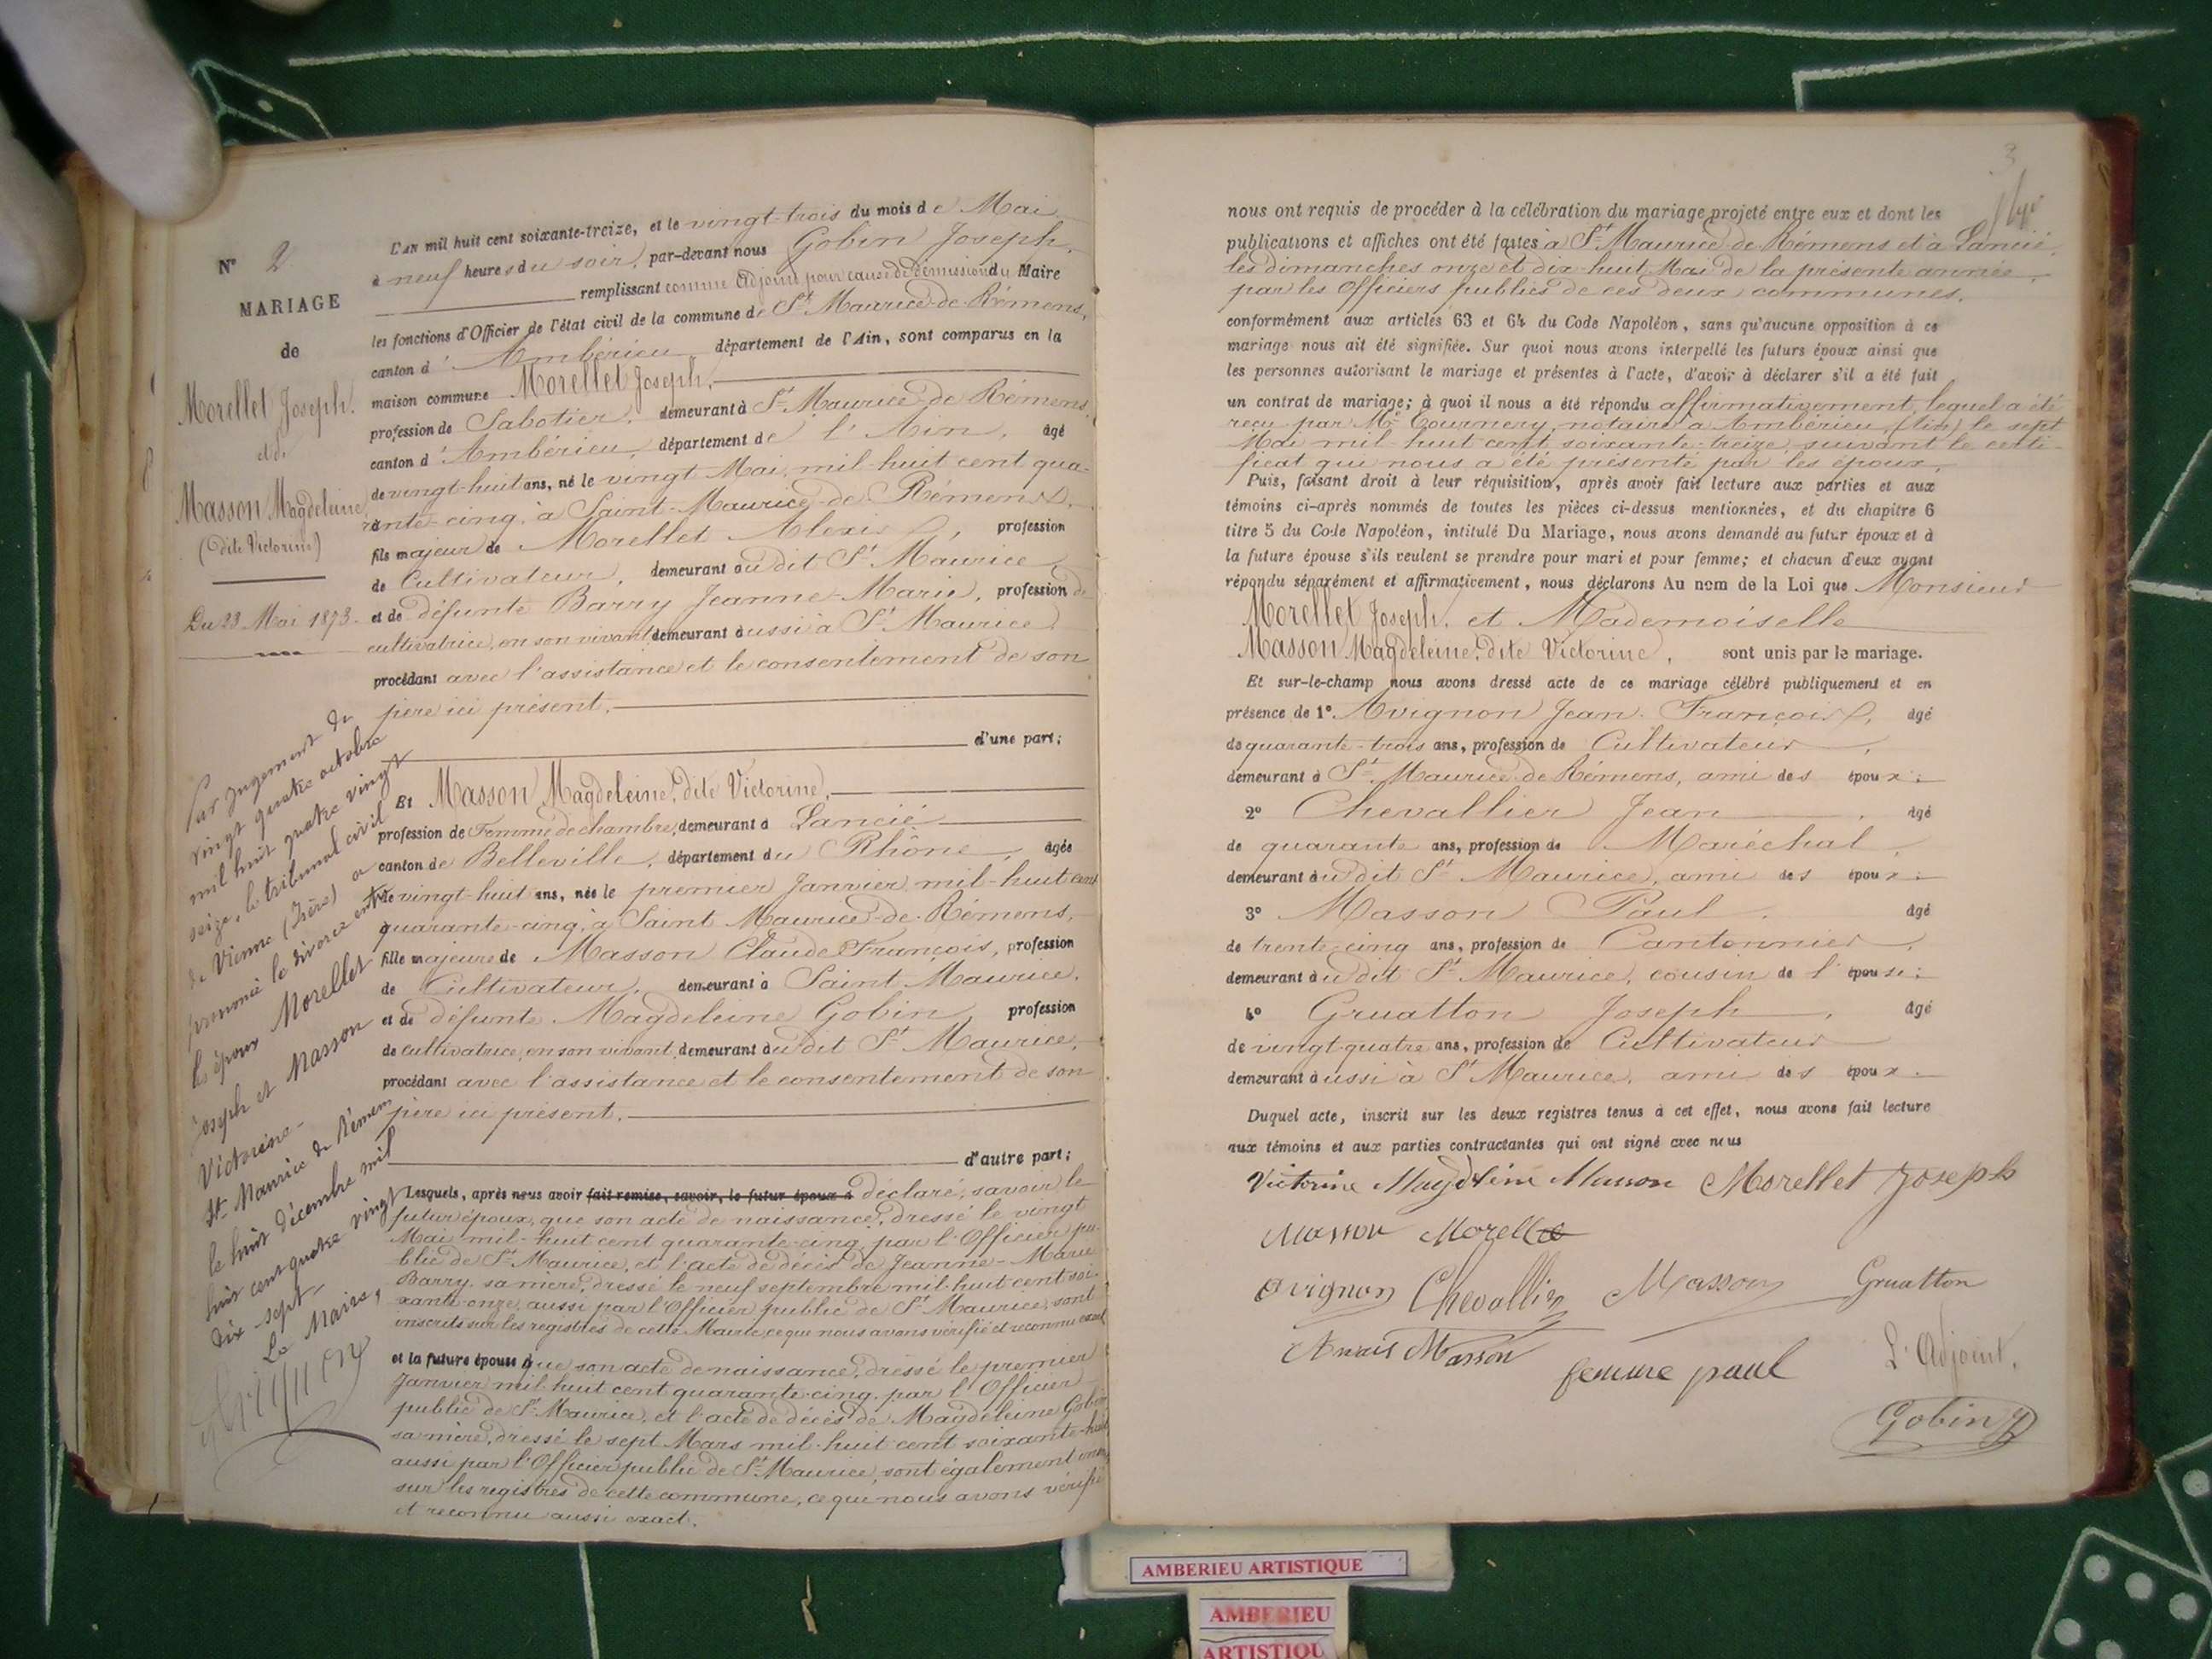 N° 2
MARIAGE
de
Morellet Joseph.
et de
Masson Magdeleine
(dite Victorine)
Du 23 Mai 1873.
Par jugement du
vingt quatre octobre
mil huit quatre vingt
seize, le tribunal civil
de Vienne (Isère) a
prononcé le divorce entre
les époux Morellet
Joseph et Masson
Victorine.
St Maurice de Rémens
le huit décembre mil
huit cent quatre vingt
dix-sept
Le Maire,
L'AN mil huit cent soixante-treize, et le vingt-trois du mois de Mai
à neuf heures du soir, par-devant nous Gobin Joseph,
remplissant comme Adjoint pour cause de démission du Maire
les fonctions d'Officier de l'état civil de la commune de St Maurice-de-Rémens,
canton d'Ambérieu, département de l'Ain, sont comparus en la
maison commune Morellet Joseph,
profession de Sabotier, demeurant à St Maurice de Rémens,
canton d'Ambérieu, département de l'Ain, âgé
de vingt-huit ans, né le vingt Mai, mil-huit cent qua-
rante-cinq, à Saint-Maurice-de-Rémens,
fils majeur de Morellet Alexis, profession
de Cultivateur, demeurant au dit St Maurice
et de défunte Barry Jeanne-Marie, profession de
cultivatrice, en son vivant demeurant aussi à St Maurice
procédant avec l'assistance et le consentement de son
père ici présent.
d'une part;
Et Masson Magdeleine, dite Victorine,
profession de Femme de chambre, demeurant à Lancié
canton de Belleville, département du Rhône, âgée
de vingt-huit ans, née le premier Janvier mil-huit cent
quarante-cinq, à Saint Maurice-de-Rémens,
fille majeure de Masson Claude François, profession
de Cultivateur, demeurant à Saint Maurice,
et de défunte Magdeleine Gobin, profession
de cultivatrice, en son vivant, demeurant au dit St Maurice,
procédant avec l'assistance et le consentement de son
père ici présent.
d'autre part;
Lesquels, après nous avoir fait remise, savoir, le futur époux à déclaré, savoir, le
futur époux, que son acte de naissance, dressé le vingt
Mai mil-huit cent quarante-cinq, par l'Officier pu-
blic de St Maurice, et l'acte de décès de Jeanne-Marie
Barry, sa mère, dressé le neuf septembre mil-huit cent soi-
xante-onze, aussi par l'Officier public de St Maurice, sont
inscrits sur les registres de cette Mairie, ce que nous avons vérifié et reconnu exact
et la future épouse que son acte de naissance, dressé le premier
Janvier mil-huit cent quarante-cinq, par l'Officier
public de St Maurice, et l'acte de décès de Magdeleine Gobin
sa mère, dressé le sept Mars mil-huit cent soixante-huit
aussi par l'Officier public de St Maurice, sont également
sur les registres de cette commune, ce que nous avons vérifié
et reconnu aussi exact.
3
nous ont requis de procéder à la célébration du mariage projeté entre eux et dont les
publications et affiches ont été faites à St Maurice-de-Rémens et à Lancié,
les dimanches onze et dix-huit Mai de la présente année,
par les Officiers publics de ces deux communes.
conformément aux articles 63 et 64 du Code Napoléon, sans qu'aucune opposition à ce
mariage nous ait été signifiée. Sur quoi nous avons interpellé les futurs époux ainsi que
les personnes autorisant le mariage et présentes à l'acte, d'avoir à déclarer s'il a été fait
un contrat de mariage; à quoi il nous a été répondu affirmativement, lequel a été
reçu par Me Tournery, notaire à Ambérieu, (Ain), le sept
Mai mil-huit cent soixante-treize, suivant le certi-
ficat qui nous a été présenté par les époux.
Puis, faisant droit à leur réquisition, après avoir fait lecture aux parties et aux
témoins ci-après nommés de toutes les pièces ci-dessus mentionnées, et du chapitre 6
titre 5 du Code Napoléon, intitulé Du Mariage, nous avons demandé au futur époux et à
la future épouse s'ils veulent se prendre pour mari et pour femme; et chacun d'eux ayant
répondu séparément et affirmativement, nous déclarons Au nom de la Loi que Monsieur
Morellet Joseph, et Mademoiselle
Masson Magdeleine, dite Victorine, sont unis par le mariage.
Et sur-le-champ nous avons dressé acte de ce mariage célébré publiquement et en
présence de 1° Avignon Jean-François, âgé
de quarante-trois ans, profession de Cultivateur,
demeurant à St Maurice de Rémens, ami des époux.
2° Chevallier Jean, âgé
de quarante ans, profession de Maréchal,
demeurant au dit St Maurice, ami des époux.
3° Masson Paul, âgé
de trente-cinq ans, profession de Cantonnier,
demeurant au dit St Maurice, cousin de l'épouse;
4° Gruatton Joseph, âgé
de vingt-quatre ans, profession de Cultivateur
demeurant aussi à St Maurice, ami des époux.
Duquel acte, inscrit sur les deux registres tenus à cet effet, nous avons fait lecture
aux témoins et aux parties contractantes qui ont signé avec nous
Victorine Magdleine Masson Morellet Joseph
Masson Morellet
Avignon Chevallier Masson Gruatton
Anaïs Masson femme paul L'Adjoint,
Gobin J
AMBERIEU ARTISTIQUE
AMBERIEU
ARTISTIQU